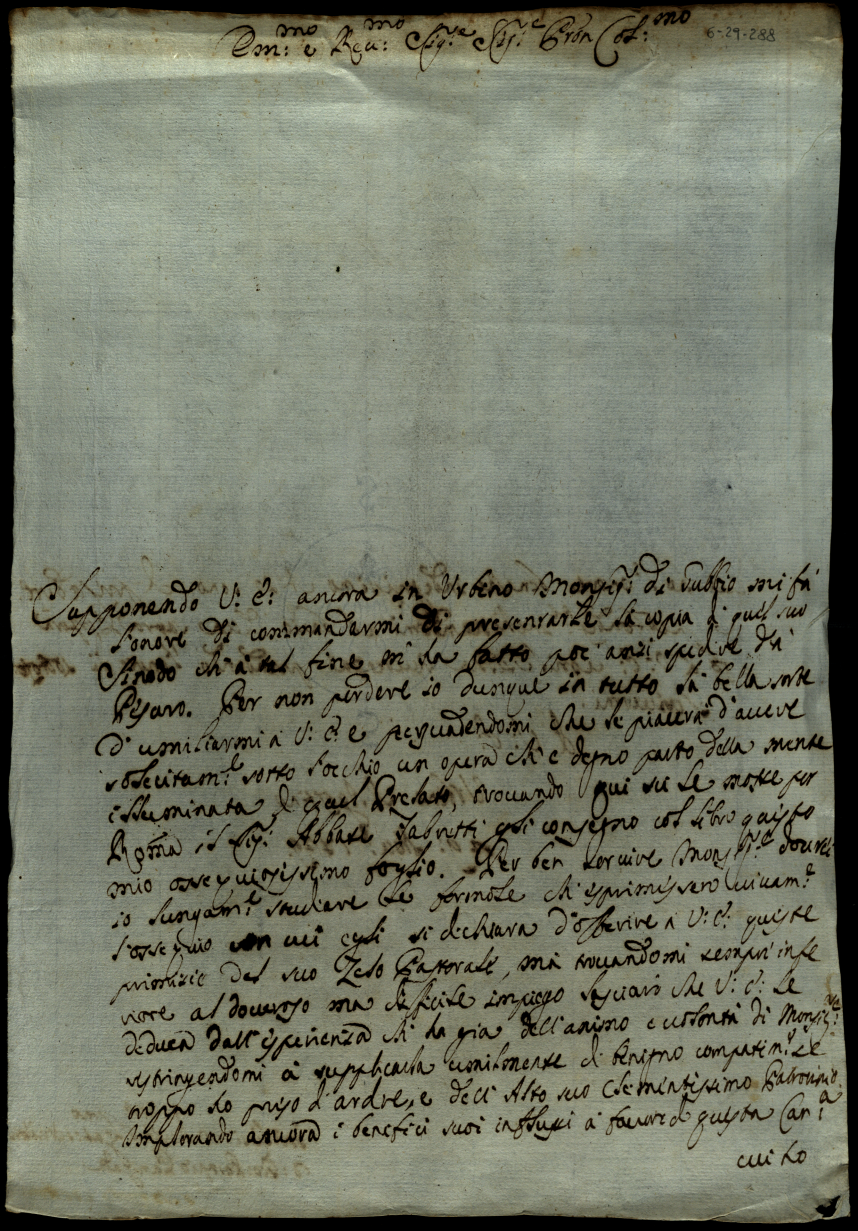 Em:mo e Reu:mo Sig:re Sig:re Pron Col:mo
6-29-288
Supponendo V: E: ancora in Urbino Monsig:r di Gubbio mi fà
l'onore di commandarmi di presentarle la copia di quel suo
Sinodo ch'à tal fine m'ha fatto poc'anzi spedire da
Pesaro. Per non perdere io dunque in tutto la bella sorte
d'umiliarmi à V: E: e persuadendomi, che le piacerà d'avere
sollecitam:te sotto l'occhio un opera ch'è degno parto della mente
illuminata di quel Prelato, trovando qui su le mosse per
Roma il Sig:r Abbate Fabretti gli consegno col libro questo
mio ossequiosissimo foglio. Per ben servire Mons:re dovrei
io lungam:te studiare le formole ch'esprimessero vivam:te
l'ossequio con cui egli si dichiara d'offerire à V: E: queste
primizie del suo Zelo Pastorale, mà trovandomi sempr'infe
riore al doveroso ma difficile impiego lasciarò che V: E: le
deduca dall'esperienza ch'ha già dell'animo e volontà di Monsig:re
restringendomi à supplicarla umilmente di benigno compatim:to se
troppo ho preso d'ardire, e dell'Alto suo Clementissimo Patrocinio
Implorando ancora i benefici suoi influssi à favore di questa Can:a
cui ho